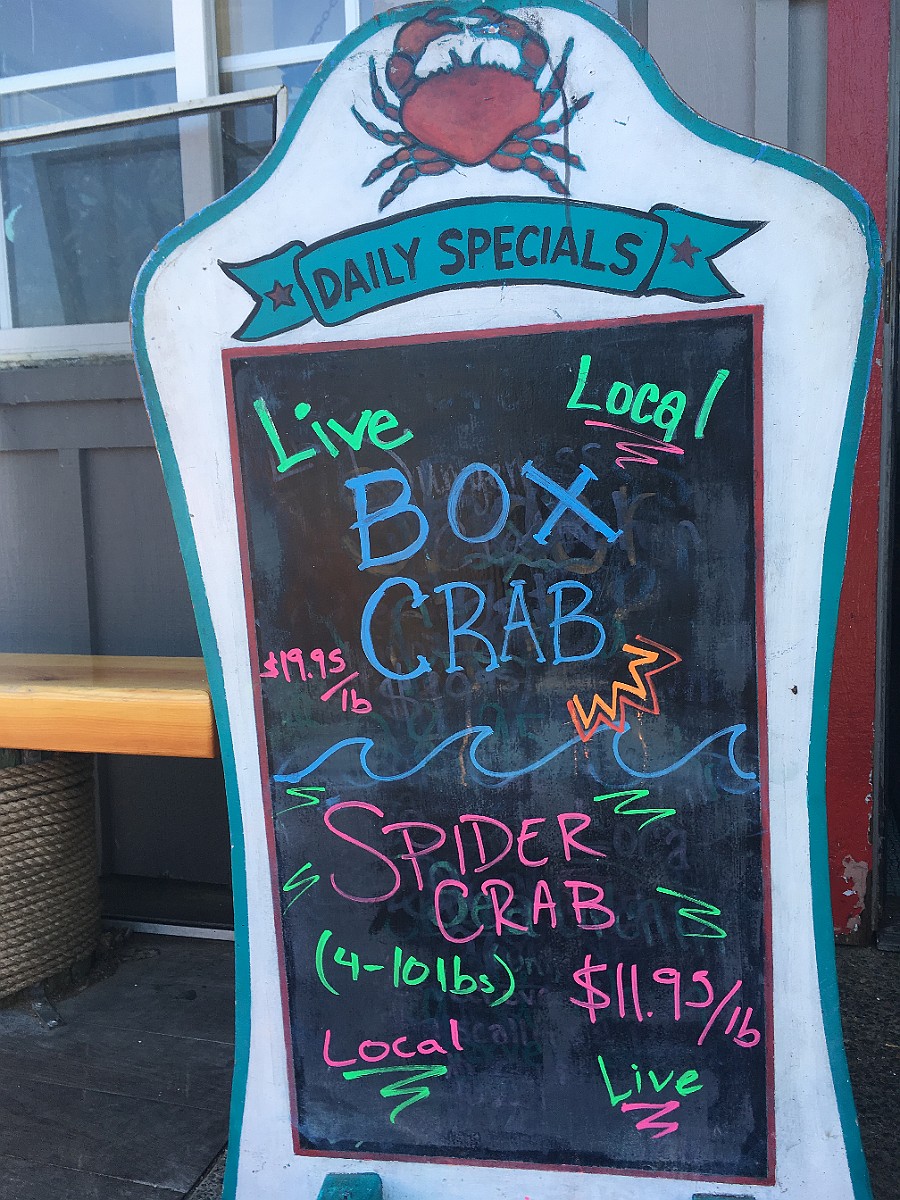 DAILY SPECIALS
Live Local
BOX
CRAB
$19.95
/lb
SPIDER
CRAB
(4-10lbs)
$11.95/lb
Local
Live